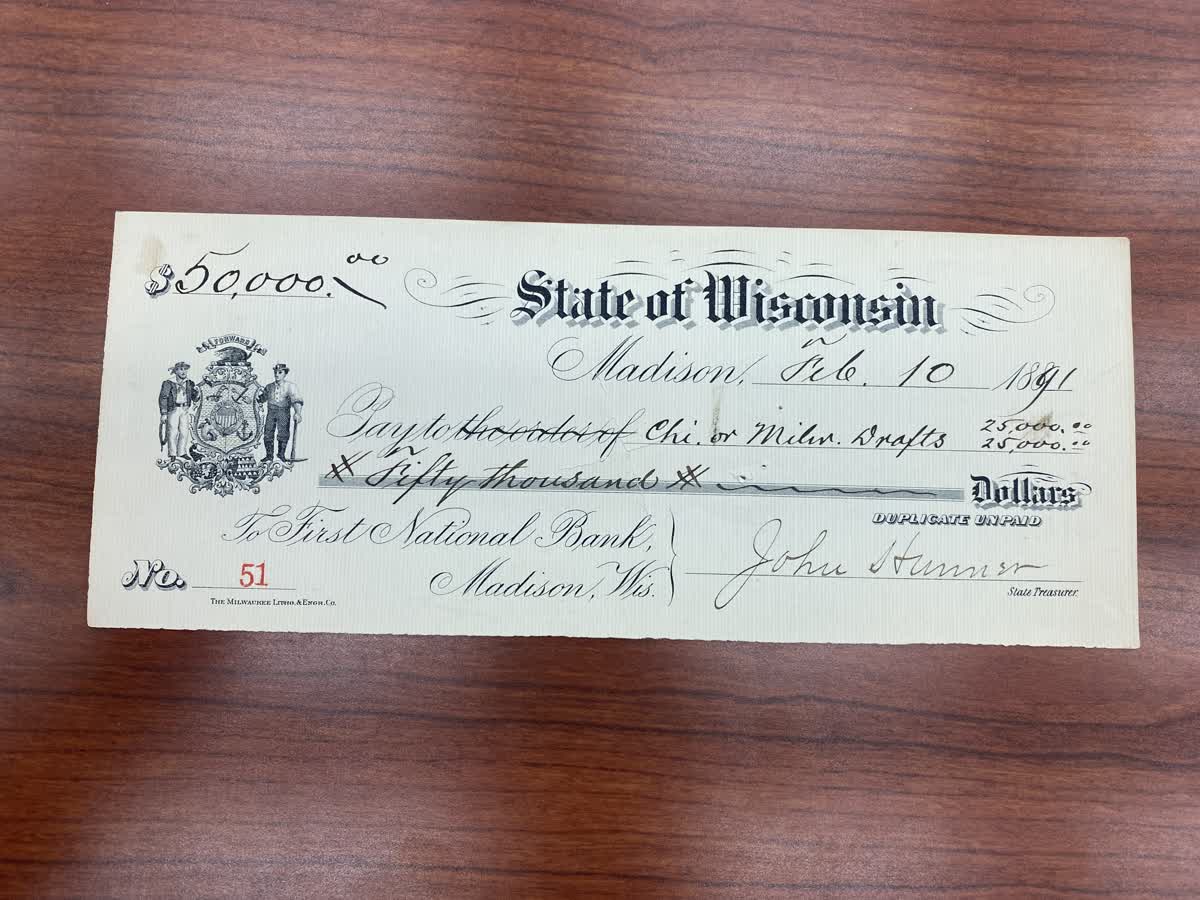 $50,000.00
State of Wisconsin
FORWARD
Madison, Feb. 10 1891
Pay to the order of Chi. or Milw. Drafts 25,000.00
25,000.00
Fifty thousand Dollars
DUPLICATE UNPAID
To First National Bank,
Madison, Wis.
John Hunner
State Treasurer.
No. 51
THE MILWAUKEE LITHO. & ENGR. CO.